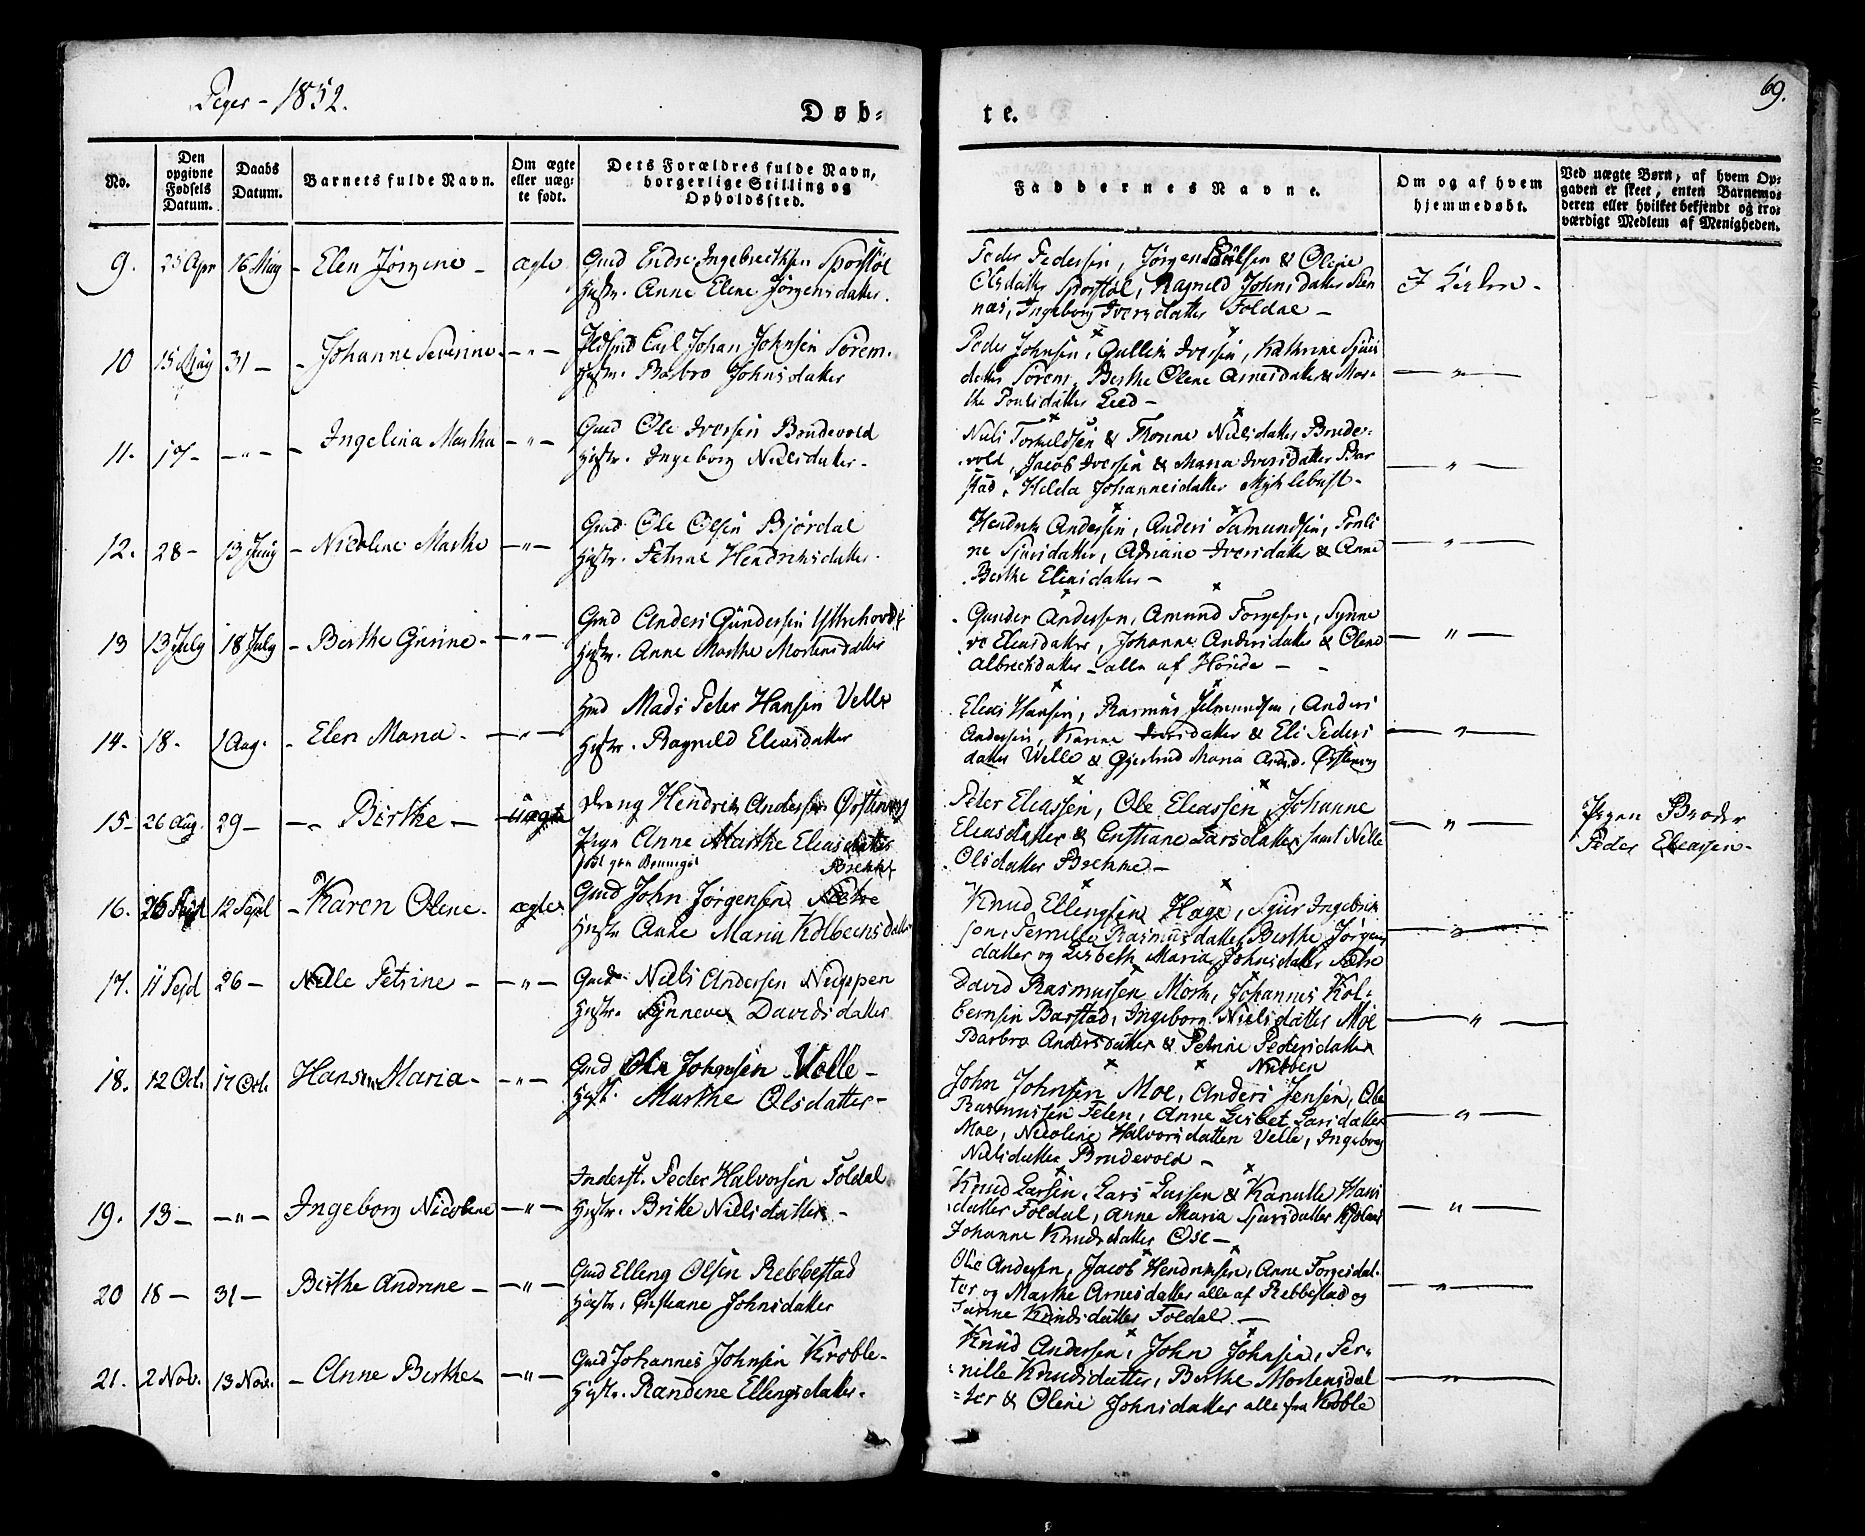 Piger - 1852.
69.
Døb-
te.
No.
Den opgivne Fødsels Datum.
Daabs Datum.
Barnets fulde Navn.
Om ægte eller uæg-te født.
Dets Forældres fulde Navn, borgerlige Stilling og Opholdssted.
Faddernes Navne.
Om og af hvem hjemmedøbt.
Ved uægte Børn, af hvem Op-
gaven er skeet, enten Barnemo-
deren eller hvilket bekjendt og tro-
værdigt Medlem af Menigheden.
9. 25 Apr 16 May - Elen Jørgine - ægte
Gmd Endre Ingebrethsen Sporstøl
Hustr. Anne Elene Jørgensdatter.
Peder Pedersen, Jørgen Poulsen & Oline
Olsdatter Sporstøl, Ragnild Johnsdatter Sten-
næs, Ingeborg Iversdatter Foldal -
I Kirken -
10 15 May 31 - - Johanne Severine - " -
Carl Johan Johnsen Sørem.
Hustr. Barbro Johnsdatter
Peder Johnsen, Gullik Iversen, Kathrine Sjurs
datter Sørem, Berthe Oline Arnesdatter & Mar-
the Poulsdatter Lied -
- " -
11. 17 - - " - - Ingelina Martha - " -
Gmd Ole Iversen Brudevold
Hustr. Ingeborg Nielsdatter -
Niels Torkildsen & Thomine Nielsdatter Brude-
vold, Jacob Iversen & Maria Iversdatter Bar
stad, Helda Johannesdatter Myklebust -
- " -
12. 28 - 13 Juny - Nicoline Marthe - " -
Gmd Ole Olsen Bjørdal
Hustr. Petrine Hendriksdatter.
Hendrik Andersen, Anders Samundsen, Pouli
ne Sjursdatter, Adriane Iversdatter & Anne
Berthe Eliasdatter -
- " -
13 13 July 18 July - Berthe Gurine - - " -
Gmd Anders Gundersen Ytrehovde
Hustr. Anne Marthe Mortensdatter
Gunder Andersen, Amund Torgersen, Synne
ve Eliasdatter, Johanne Andersdatter & Olene
Albrectsdatter - alle af Hovde -
- " -
14. 18. 1 Aug. - Elen Maria - - " -
Gmd Mads Peter Hansen Velle
Hustr. Ragnild Eleasdatter
Eleas Hansen, Rasmus Jelmundsen, Anders
Andersen, Hanne Iversdatter & Eli Peders
datter Welle & Gjertrud Maria Andrd. Ørstenvig
- " -
15 - 26 Aug. 29 - - Birthe - uægte
Dreng Hendrik Andersen Ørstenvig
Pige Anne Marthe Eleasdatter
Brekke
Peter Eleassen, Ole Eleassen, Johanne
Eleasdatter & Cristiane Larsdatter samt Nille
Olsdatter Brekke -
- " -
Pigen Broder
Peder Eleassen -
16. 12 Sept - Karen Olene. ægte
Gmd John Jørgensen Sætre
Hustr Anne Maria Kolbeensdatter
Knud Ellingsen Hage, Sjur Ingebrik
sen, Pernille Rasmusdatter, Berthe Jørgens
datter og Lisbeth Maria Johnsdatter Sætre
- " -
17. 11 Sept 26 - Nille Petrine - - " -
Gmd Niels Andersen Nuppen
Hustr. Synneve Davidsdatter
David Rasmussen Mork, Johannes Kol-
bernsen Barstad, Ingeborg Nielsdatter Moe
Barbro Andersdatter & Petrine Pedersdatter
Nubben
- " -
18. 12 Oct. 17 Oct. Hansine Maria - - " -
Gmd Ole Johansen Velle -
Hust. Marthe Olsdatter -
John Johnsen Moe, Anders Jensen, Ole
Rasmussen Felen, Anne Lisbet Larsdatter
Moe, Nicoline Halvorsdatter Velle, Ingeborg
Nielsdatter Brudevold -
- " -
19. 13 - - " - Ingeborg Nicoline - " -
Inderst. Peder Halvorsen Foldal
Hustr. Brithe Nielsdatter -
Knud Larsen, Lars Larsen & Kanutte Hans
datter Foldal, Anne Maria Sjursdatter Kjølaas
Johanne Knudsdatter Ose -
- " -
20 18 - 31 - Birthe Andrine - - " -
Gmd Elling Olsen Rebbestad
Hustr. Cristiane Johnsdatter
Ole Andersen, Jacob Hendriksen, Anne Torgersdat-
ter og Marthe Arnesdatter alle af Rebbestad og
Knudsdatter Foldal. -
- " -
21. 2 Nov. 13 Nov. - Anne Berthe - - " -
Gmd Johannes Johnsen Krøble -
Hustr. Randine Ellingsdatter.
Knud Andersen, John Johnsen, Per-
nille Knudsdatter, Berthe Mortensdat
ter & Oline Johnsdatter alle fra Krøble
- " -